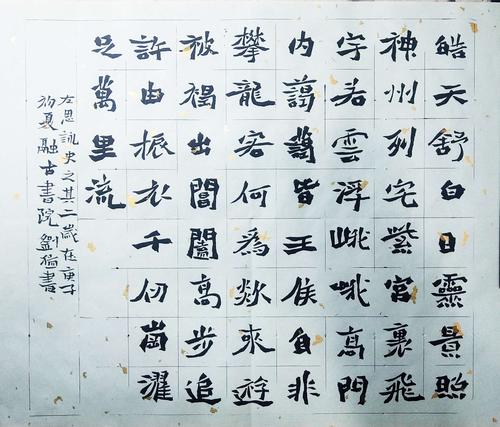 皓天舒白日靈景照
神州列宅紫宮裏飛
宇若雲浮峨峨高門
内藹藹皆王侯自非
攀龍客何為欻來遊
被褐出閶闔高步追
許由振衣千仞崗濯
足萬里流
左思詠史之其二歲在庚子
初夏融古書院劉書